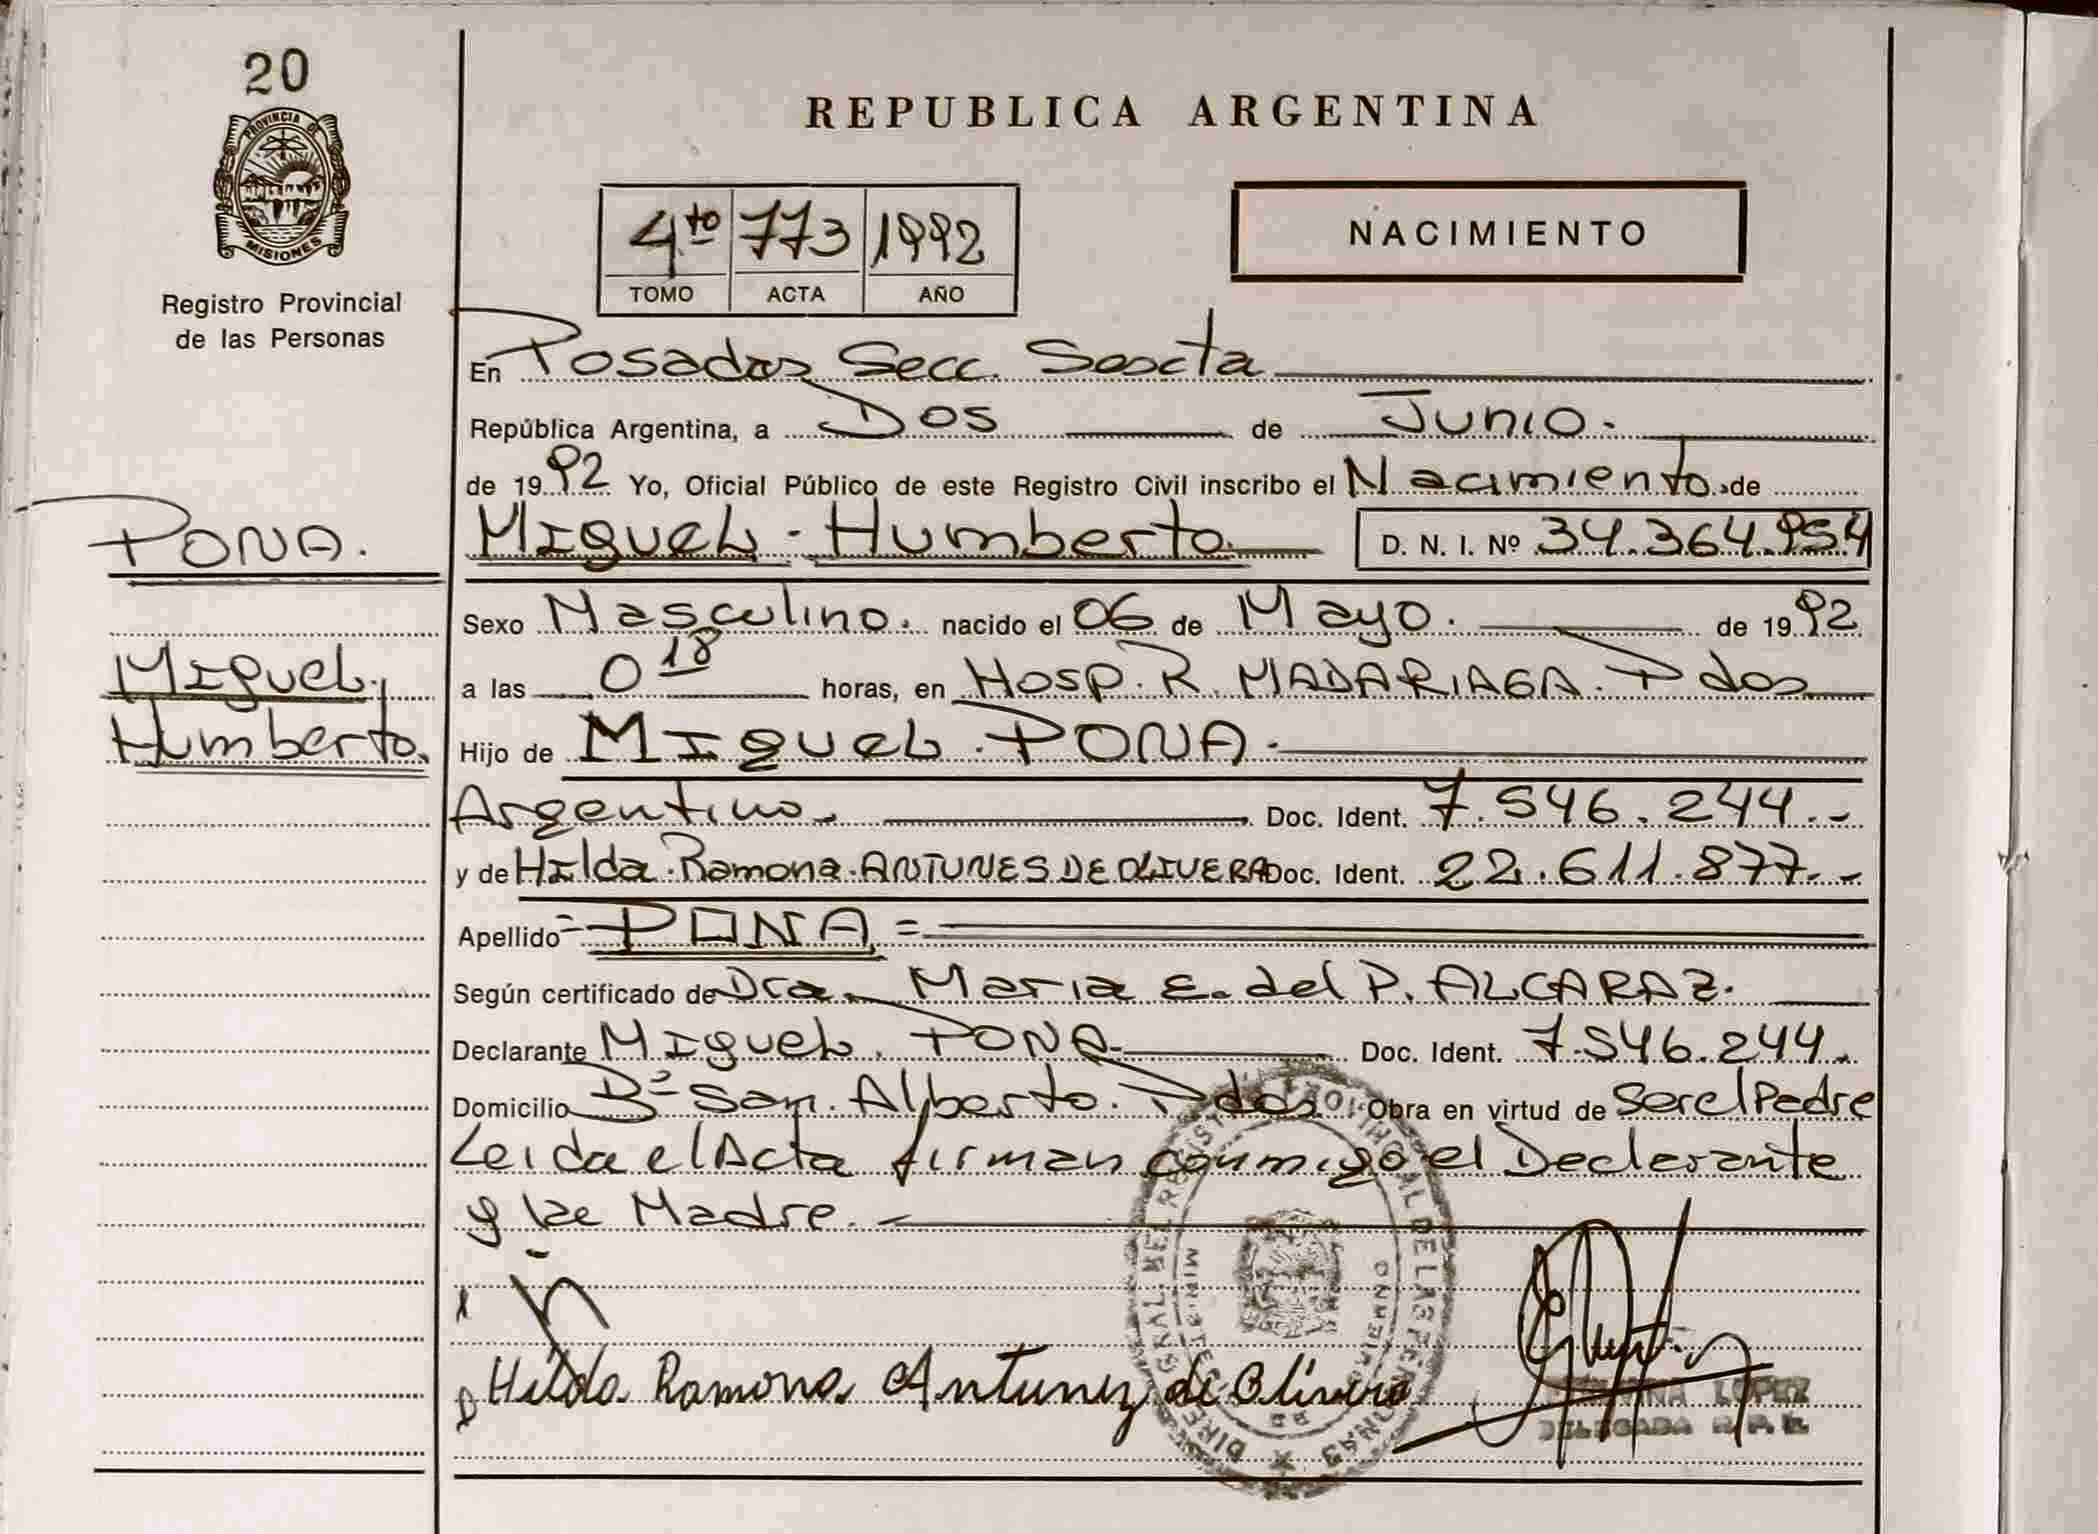 20
PROVINCIA DE
MISIONES
Registro Provincial
de las Personas
REPUBLICA ARGENTINA
4to 773 1992
TOMO ACTA AÑO
NACIMIENTO
En Posadas Secc. Sexta
República Argentina, a Dos de Junio.
de 1992 Yo, Oficial Público de este Registro Civil inscribo el Nacimiento de
PONA.
Miguel Humberto D. N. I. Nº 34.364.954
Sexo Masculino. nacido el 06 de Mayo. de 1992
Miguel
a las 0 18 horas, en Hosp. R. MADARIAGA. Pdas
Humberto.
Hijo de Miguel PONA.
Argentino. Doc. Ident. 7.546.244.-
y de Hilda Ramona ANTUNES DE OLIVERA Doc. Ident. 22.611.877.-
Apellido = PONA =
Según certificado de Dra. Maria E. del P. ALCARAZ.
Declarante Miguel PONA Doc. Ident. 7.546.244.
Domicilio Bº San Alberto. Pdas Obra en virtud de Ser el Padre
Leida el Acta firman conmigo el Declarante
y la Madre.
Hilda Ramona Antunez de Olivera
LOPEZ
DELEGADA R. P. P.